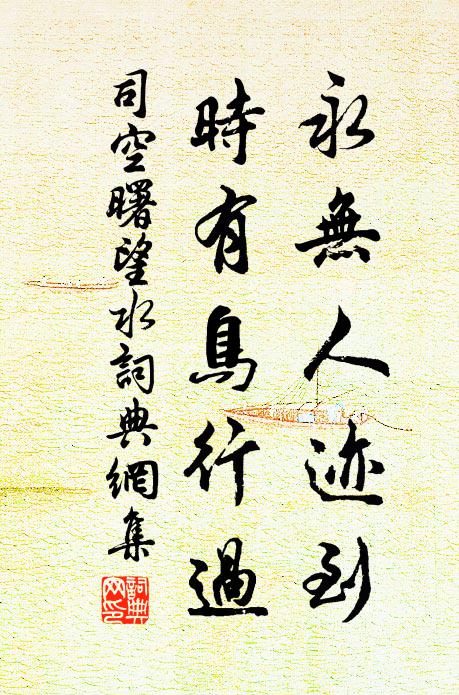 永無人迹到
時有鳥行過
司空曙望水詞典網集
詞典網印